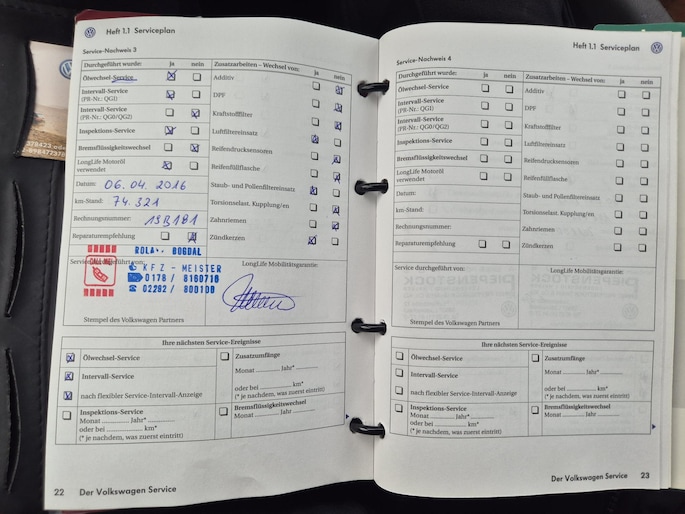 Heft 1.1 Serviceplan
Service-Nachweis 3
Durchgeführt wurde: ja nein
Ölwechsel-Service
Intervall-Service
(PR-Nr.: QGI)
Intervall-Service
(PR-Nr.: QG0/QG2)
Inspektions-Service
Bremsflüssigkeitswechsel
LongLife Motoröl
verwendet
Datum: 06.04.2016
km-Stand: 74.321
Rechnungsnummer: 13B181
Reparaturempfehlung
Zusatzarbeiten - Wechsel von: ja nein
Additiv
DPF
Kraftstofffilter
Luftfiltereinsatz
Reifendrucksensoren
Reifenfüllflasche
Staub- und Pollenfiltereinsatz
Torsionselast. Kupplung/en
Zahnriemen
Zündkerzen
BOGDAL
KFZ - MEISTER
0178 / 8100710
02282 / 800100
LongLife Mobilitätsgarantie:
Stempel des Volkswagen Partners
Ihre nächsten Service-Ereignisse
Ölwechsel-Service
Intervall-Service
nach flexibler Service-Intervall-Anzeige
Inspektions-Service
Monat ............ Jahr* ............
oder bei ............ km*
(* je nachdem, was zuerst eintritt)
Zusatzumfänge
Monat ............ Jahr* ............
oder bei ............ km*
(* je nachdem, was zuerst eintritt)
Bremsflüssigkeitswechsel
Monat ............ Jahr ............
22 Der Volkswagen Service
Heft 1.1 Serviceplan
Service-Nachweis 4
Durchgeführt wurde: ja nein
Ölwechsel-Service
Intervall-Service
(PR-Nr.: QGI)
Intervall-Service
(PR-Nr.: QG0/QG2)
Inspektions-Service
Bremsflüssigkeitswechsel
LongLife Motoröl
verwendet
Datum:
km-Stand:
Rechnungsnummer:
Reparaturempfehlung
Zusatzarbeiten - Wechsel von: ja nein
Additiv
DPF
Kraftstofffilter
Luftfiltereinsatz
Reifendrucksensoren
Reifenfüllflasche
Staub- und Pollenfiltereinsatz
Torsionselast. Kupplung/en
Zahnriemen
Zündkerzen
Service durchgeführt von:
LongLife Mobilitätsgarantie:
Stempel des Volkswagen Partners
Ihre nächsten Service-Ereignisse
Ölwechsel-Service
Intervall-Service
nach flexibler Service-Intervall-Anzeige
Inspektions-Service
Monat ............ Jahr* ............
oder bei ............ km*
(* je nachdem, was zuerst eintritt)
Zusatzumfänge
Monat ............ Jahr* ............
oder bei ............ km*
(* je nachdem, was zuerst eintritt)
Bremsflüssigkeitswechsel
Monat ............ Jahr ............
Der Volkswagen Service 23